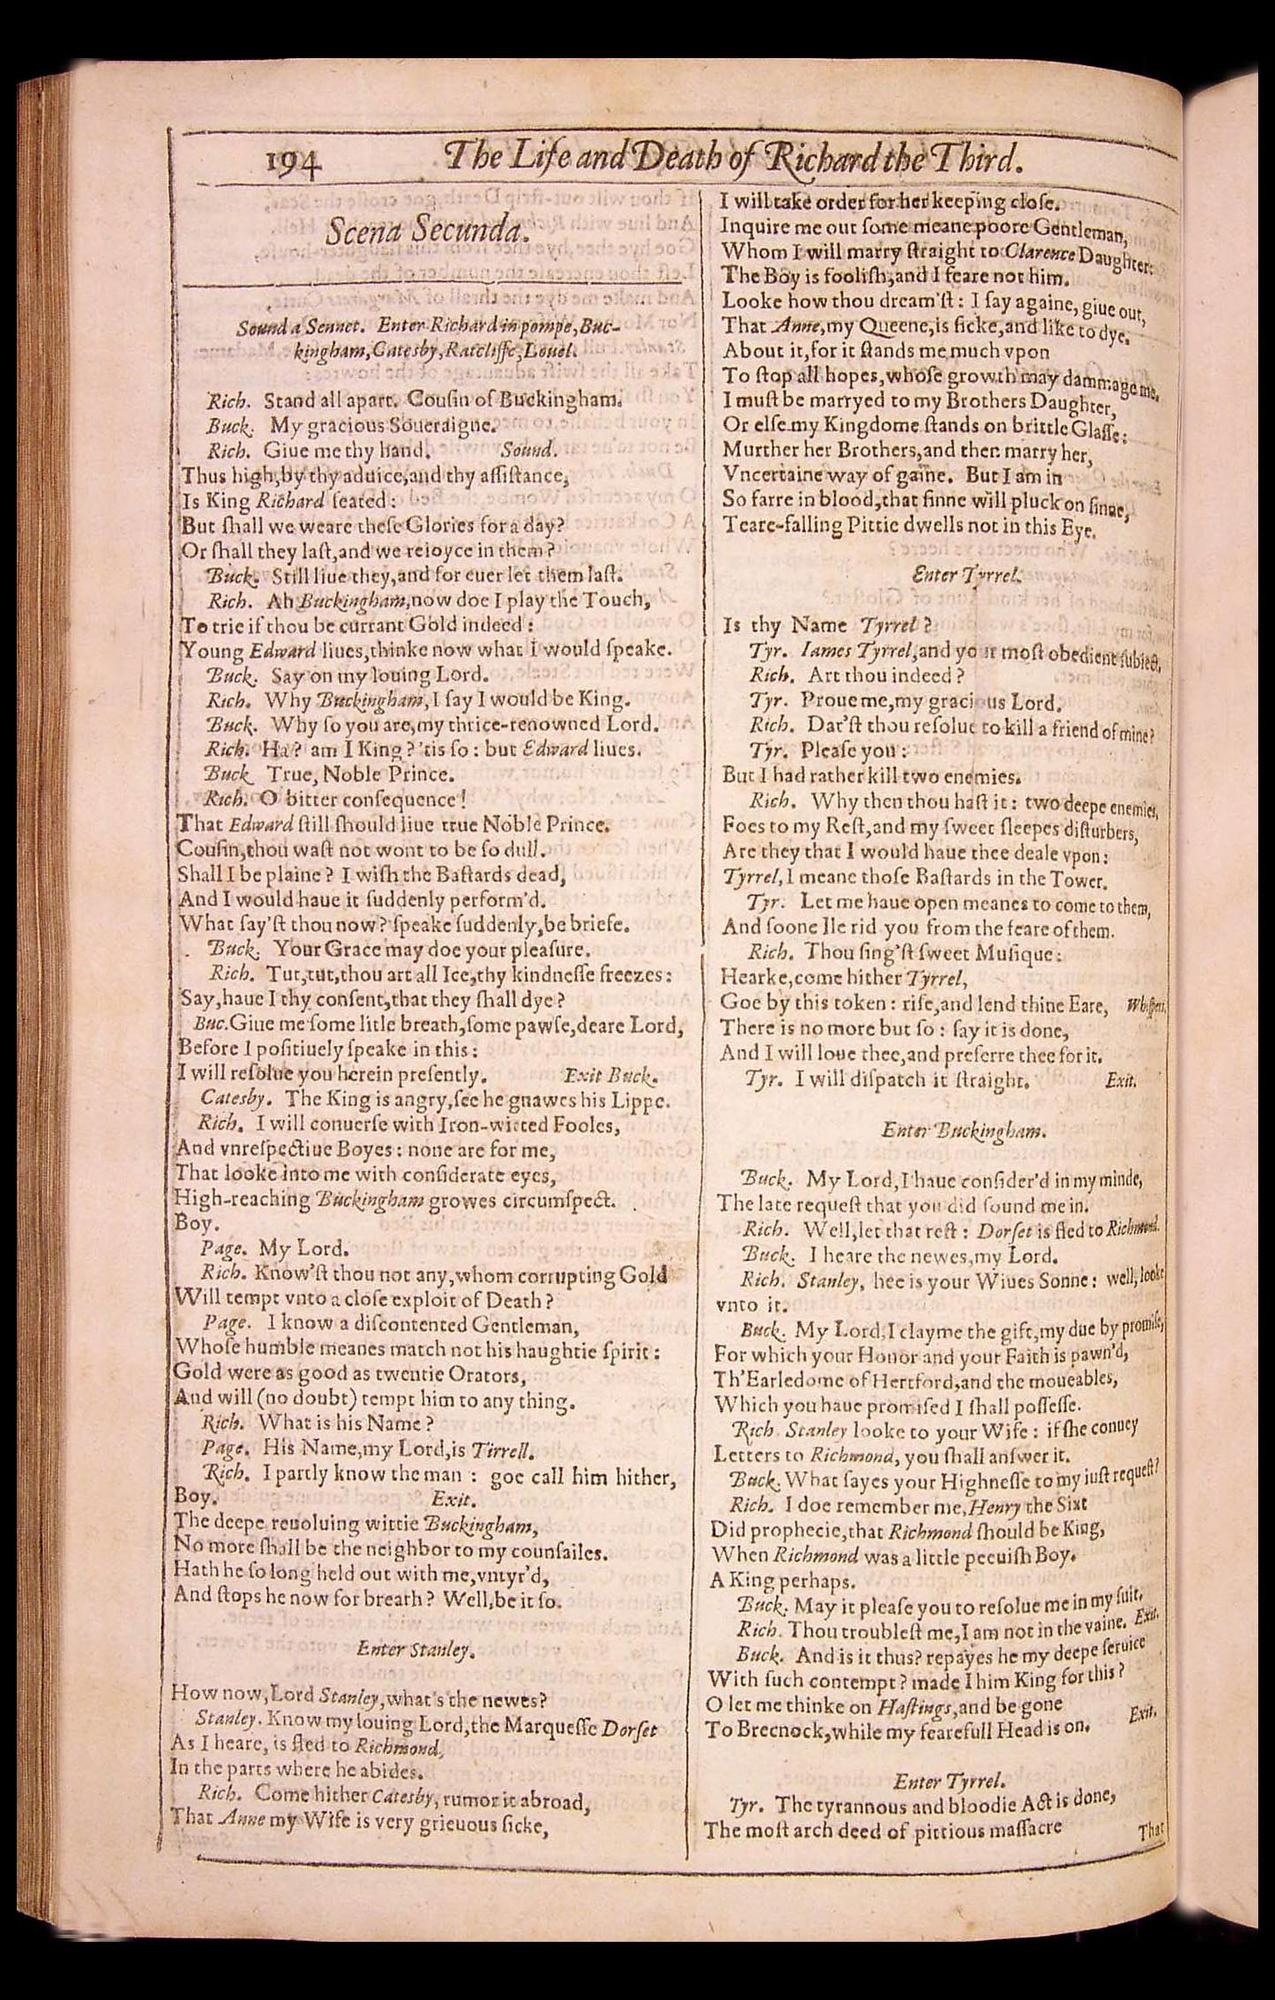 194 The Life and Death of Richard the Third.
Scena Secunda.
Sound a Sennet. Enter Richard in pompe, Buc-
kingham, Catesby, Ratcliffe, Louel.
Rich. Stand all apart. Cousin of Buckingham.
Buck. My gracious Soueraigne.
Rich. Giue me thy hand. Sound.
Thus high, by thy aduice, and thy aſſiſtance,
Is King Richard ſeated:
But ſhall we weare theſe Glories for a day?
Or ſhall they laſt, and we reioyce in them?
Buck. Still liue they, and for euer let them laſt.
Rich. Ah Buckingham, now doe I play the Touch,
To trie if thou be currant Gold indeed:
Young Edward liues, thinke now what I would ſpeake.
Buck. Say on my louing Lord.
Rich. Why Buckingham, I ſay I would be King.
Buck. Why ſo you are, my thrice-renowned Lord.
Rich. Ha? am I King? 'tis ſo: but Edward liues.
Buck True, Noble Prince.
Rich. O bitter conſequence!
That Edward ſtill ſhould liue true Noble Prince.
Couſin, thou waſt not wont to be ſo dull.
Shall I be plaine? I wiſh the Baſtards dead,
And I would haue it ſuddenly perform'd.
What ſay'ſt thou now? ſpeake ſuddenly, be briefe.
Buck. Your Grace may doe your pleaſure.
Rich. Tut, tut, thou art all Ice, thy kindneſſe freezes:
Say, haue I thy conſent, that they ſhall dye?
Buc. Giue me ſome litle breath, ſome pawſe, deare Lord,
Before I poſitiuely ſpeake in this:
I will reſolue you herein preſently. Exit Buck.
Catesby. The King is angry, ſee he gnawes his Lippe.
Rich. I will conuerſe with Iron-witted Fooles,
And vnreſpectiue Boyes: none are for me,
That looke into me with conſiderate eyes,
High-reaching Buckingham growes circumſpect.
Boy.
Page. My Lord.
Rich. Know'ſt thou not any, whom corrupting Gold
Will tempt vnto a cloſe exploit of Death?
Page. I know a diſcontented Gentleman,
Whoſe humble meanes match not his haughtie ſpirit:
Gold were as good as twentie Orators,
And will (no doubt) tempt him to any thing.
Rich. What is his Name?
Page. His Name, my Lord, is Tirrell.
Rich. I partly know the man: goe call him hither,
Boy. Exit.
The deepe reuoluing wittie Buckingham,
No more ſhall be the neighbor to my counſailes.
Hath he ſo long held out with me, vntyr'd,
And ſtops he now for breath? Well, be it ſo.
Enter Stanley.
How now, Lord Stanley, what's the newes?
Stanley. Know my louing Lord, the Marqueſſe Dorſet
As I heare, is fled to Richmond,
In the parts where he abides.
Rich. Come hither Catesby, rumor it abroad,
That Anne my Wife is very grieuous ſicke,
I will take order for her keeping cloſe.
Inquire me out ſome meane poore Gentleman,
Whom I will marry ſtraight to Clarence Daughter:
The Boy is fooliſh, and I feare not him.
Looke how thou dream'ſt: I ſay againe, giue out,
That Anne, my Queene, is ſicke, and like to dye.
About it, for it ſtands me much vpon
To ſtop all hopes, whoſe growth may dammage me.
I muſt be marryed to my Brothers Daughter,
Or elſe my Kingdome ſtands on brittle Glaſſe:
Murther her Brothers, and then marry her,
Vncertaine way of gaine. But I am in
So farre in blood, that ſinne will pluck on ſinne,
Teare-falling Pittie dwells not in this Eye.
Enter Tyrrel.
Is thy Name Tyrrel?
Tyr. Iames Tyrrel, and your moſt obedient ſubiect.
Rich. Art thou indeed?
Tyr. Proue me, my gracious Lord.
Rich. Dar'ſt thou reſolue to kill a friend of mine?
Tyr. Pleaſe you:
But I had rather kill two enemies.
Rich. Why then thou haſt it: two deepe enemies,
Foes to my Reſt, and my ſweet ſleepes diſturbers,
Are they that I would haue thee deale vpon:
Tyrrel, I meane thoſe Baſtards in the Tower.
Tyr. Let me haue open meanes to come to them,
And ſoone Ile rid you from the feare of them.
Rich. Thou ſing'ſt ſweet Muſique:
Hearke, come hither Tyrrel,
Goe by this token: riſe, and lend thine Eare, Whiſpers.
There is no more but ſo: ſay it is done,
And I will loue thee, and preferre thee for it.
Tyr. I will diſpatch it ſtraight. Exit.
Enter Buckingham.
Buck. My Lord, I haue conſider'd in my minde,
The late requeſt that you did ſound me in.
Rich. Well, let that reſt: Dorſet is fled to Richmond.
Buck. I heare the newes, my Lord.
Rich. Stanley, hee is your Wiues Sonne: well, looke
vnto it.
Buck. My Lord, I clayme the gift, my due by promiſe,
For which your Honor and your Faith is pawn'd,
Th'Earledome of Hertford, and the moueables,
Which you haue promiſed I ſhall poſſeſſe.
Rich Stanley looke to your Wife: if ſhe conuey
Letters to Richmond, you ſhall anſwer it.
Buck. What ſayes your Highneſſe to my iuſt requeſt?
Rich. I doe remember me, Henry the Sixt
Did prophecie, that Richmond ſhould be King,
When Richmond was a little peeuiſh Boy.
A King perhaps.
Buck. May it pleaſe you to reſolue me in my ſuit.
Rich. Thou troubleſt me, I am not in the vaine. Exit.
Buck. And is it thus? repayes he my deepe ſeruice
With ſuch contempt? made I him King for this?
O let me thinke on Haſtings, and be gone
To Brecnock, while my fearefull Head is on. Exit.
Enter Tyrrel.
Tyr. The tyrannous and bloodie Act is done,
The moſt arch deed of pittious maſſacre
That